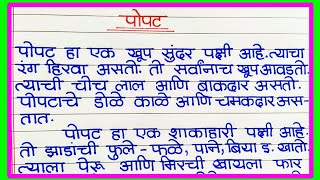 पोपट
पोपट हा एक खूप सुंदर पक्षी आहे.त्याचा
रंग हिरवा असतो. तो सर्वांनाच खूप आवडतो.
त्याची चोच लाल आणि बाकदार असते.
पोपटाचे डोळे काळे आणि चमकदार अस-
तात.
पोपट हा एक शाकाहारी पक्षी आहे.
तो झाडांची फुले - फळे, पाने, बिया इ. खातो.
त्याला पेरू आणि मिरची खायला फार